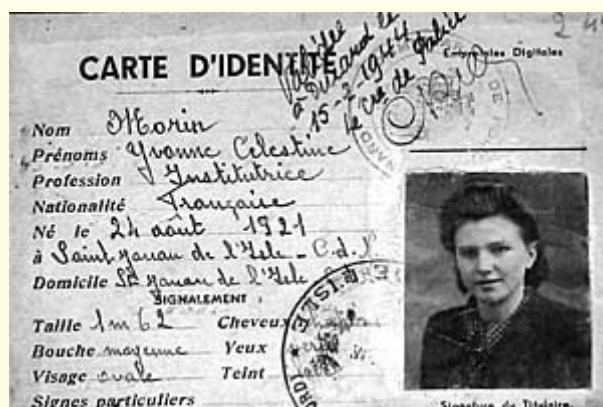 CARTE D'IDENTITÉ
Validée
à Dinard le
15-2-1944
le Cre de Police
Empreintes Digitales
Nom Morin
Prénoms Yvonne Célestine
Profession Institutrice
Nationalité Française
Né le 24 août 1921
à Saint Jouan de l'Isle - C.d.N
Domicile St Jouan de l'Isle
SIGNALEMENT
Taille 1m62 Cheveux
Bouche moyenne Yeux
Visage ovale Teint
Signes particuliers
Signature du Titulaire,